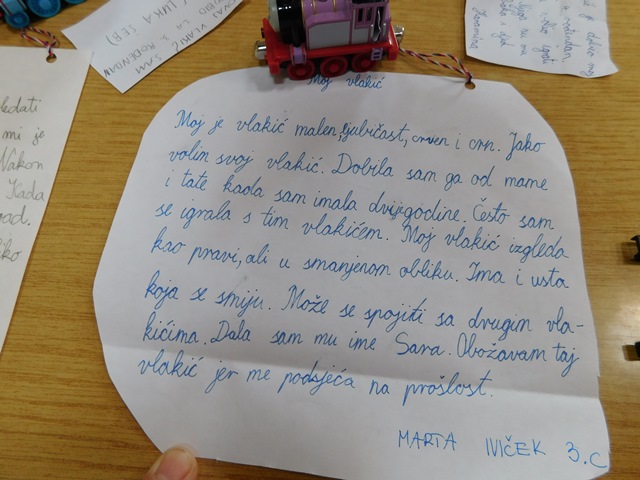 Moj vlakić
Moj je vlakić malen, ljubičast, crven i crn. Jako
volim svoj vlakić. Dobila sam ga od mame
i tate kada sam imala dvije godine. Često sam
se igrala s tim vlakićem. Moj vlakić izgleda
kao pravi, ali u smanjenom obliku. Ima i usta
koja se smiju. Može se spojiti sa drugim vla-
kićima. Dala sam mu ime Sara. Obožavam taj
vlakić jer me podsjeća na prošlost.
MARTA IVIČEK 3.C
VLAKIĆ SAM
LUKA
mi je
Nakon
Kada